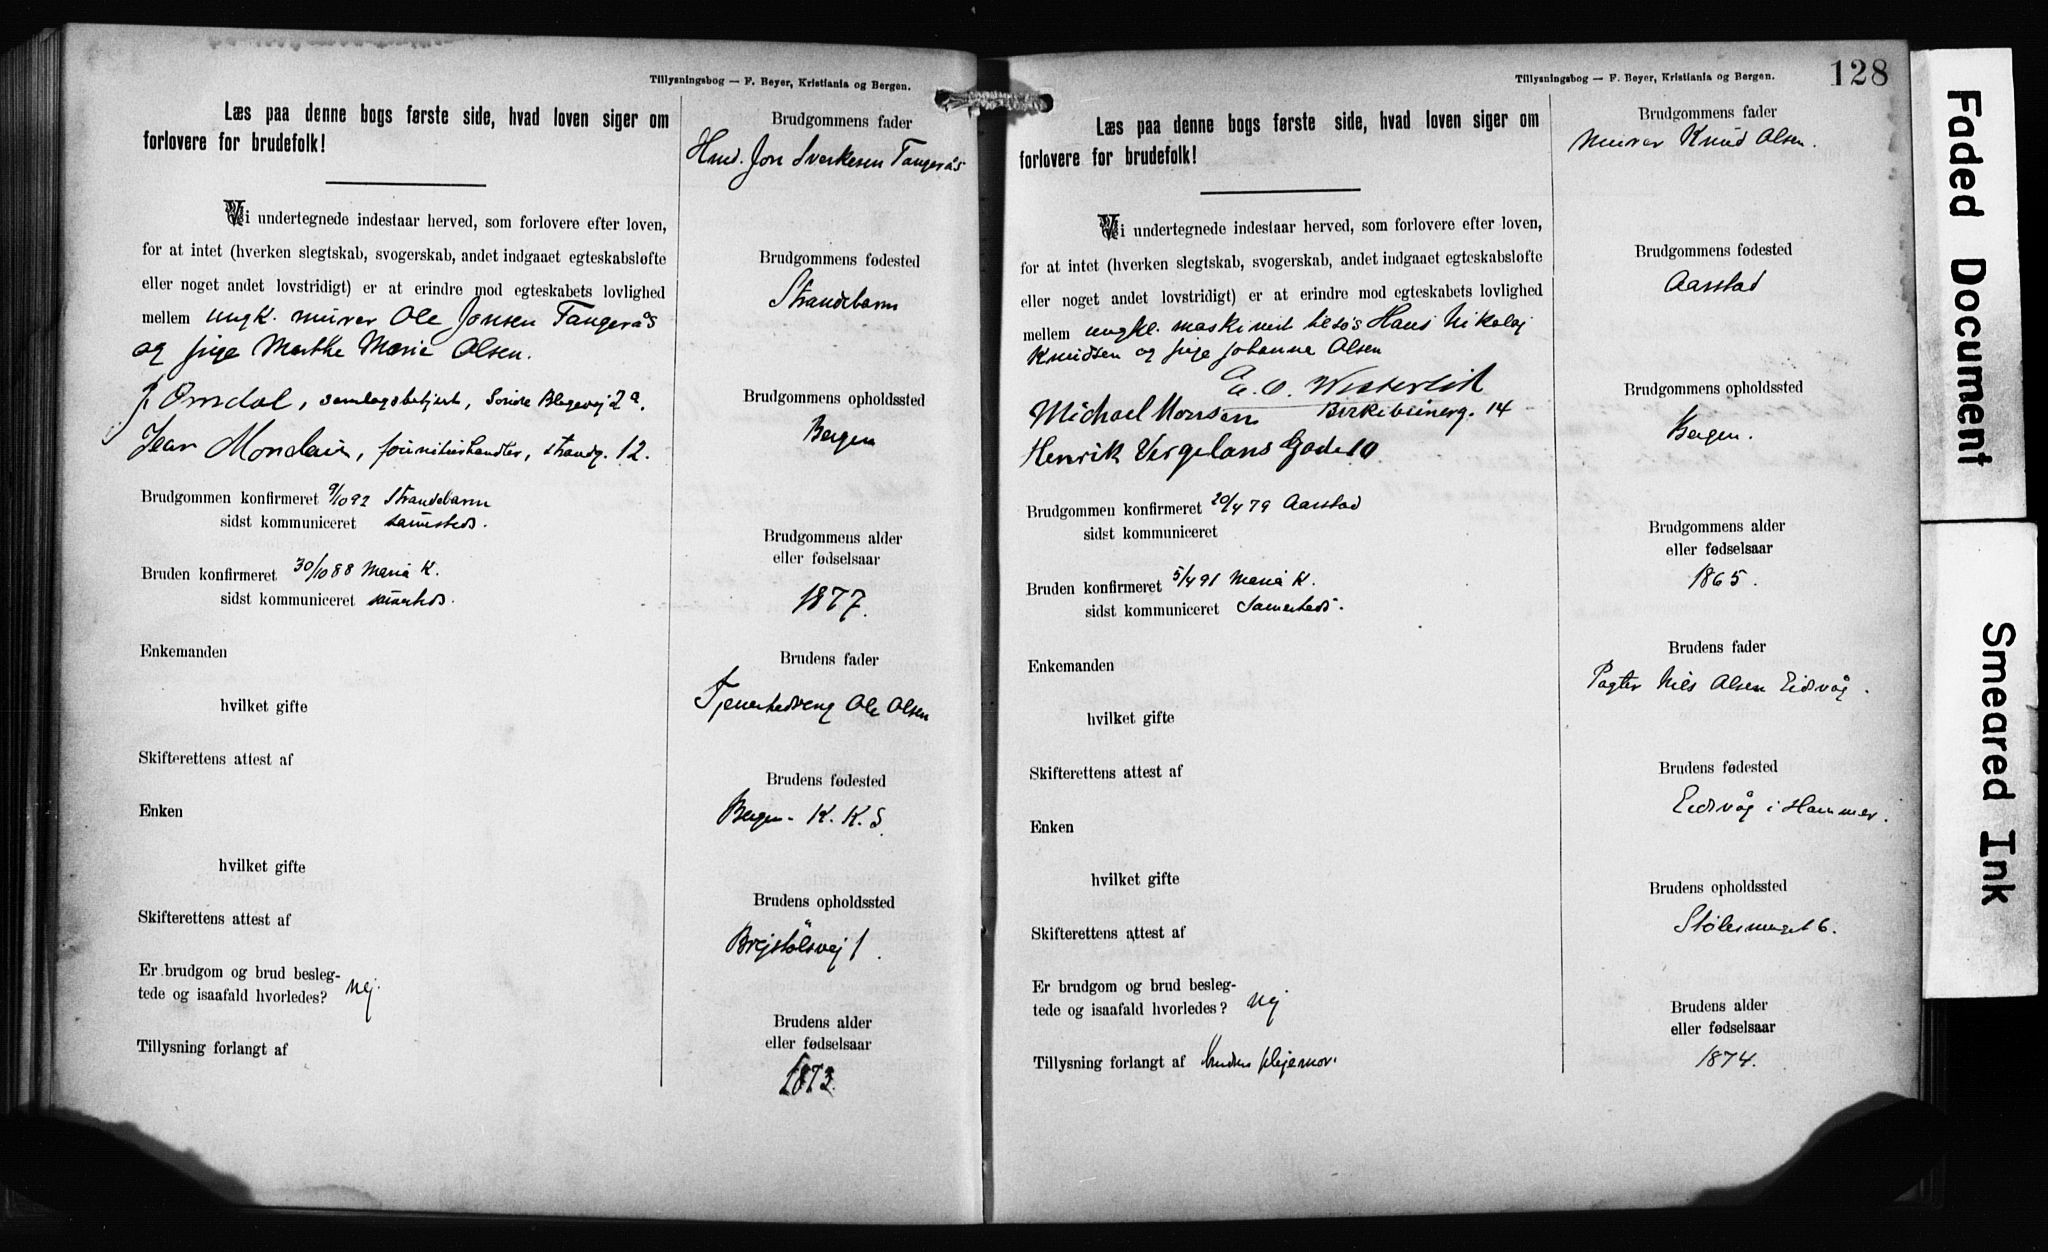 Tillysningsbog — F. Beyer, Kristiania og Bergen.
Læs paa denne bogs første side, hvad loven siger om
forlovere for brudefolk!
Vi undertegnede indestaar herved, som forlovere efter loven,
for at intet (hverken slegtskab, svogerskab, andet indgaaet egteskabsløfte
eller noget andet lovstridigt) er at erindre mod egteskabets lovlighed
mellem ungk. murer Ole Jonsen Tangerås
og pige Marthe Marie Olsen.
J. Omdal, samlagsbetjent, Søndre Blegevej 2a.
strandg. 12.
Brudgommen konfirmeret 9/10 92 Strandebarm
sidst kommuniceret sammesteds.
Bruden konfirmeret 30/10 88 Maria K.
sidst kommuniceret sammesteds.
Enkemanden
hvilket gifte
Skifterettens attest af
Enken
hvilket gifte
Skifterettens attest af
Er brudgom og brud besleg-
tede og isaafald hvorledes? Nej.
Tillysning forlangt af
Brudgommens fader
Hmd. Jon Sverkesen Tangerås
Brudgommens fødested
Strandebarm
Brudgommens opholdssted
Bergen
Brudgommens alder
eller fødselsaar
1877.
Brudens fader
Ole Olsen
Brudens fødested
Bergen - K. K. S.
Brudens opholdssted
Brejstølsvej 1.
Brudens alder
eller fødselsaar
1873.
Tillysningsbog — F. Beyer, Kristiania og Bergen.
128
Læs paa denne bogs første side, hvad loven siger om
forlovere for brudefolk!
Vi undertegnede indestaar herved, som forlovere efter loven,
for at intet (hverken slegtskab, svogerskab, andet indgaaet egteskabsløfte
eller noget andet lovstridigt) er at erindre mod egteskabets lovlighed
mellem ungk. maskinist tilsøs Hans Nikolaj
Knudsen og pige Johanne Olsen
Westerlid
Michael Monsen Birkebeinerg. 14
Henrik Vergelans Gade 10
Brudgommen konfirmeret 20/4 79 Aarstad
sidst kommuniceret
Bruden konfirmeret 5/4 91 Maria K.
sidst kommuniceret Sammesteds.
Enkemanden
hvilket gifte
Skifterettens attest af
Enken
hvilket gifte
Skifterettens attest af
Er brudgom og brud besleg-
tede og isaafald hvorledes? Nej
Tillysning forlangt af brudens plejemor.
Brudgommens fader
Murer Knud Olsen.
Brudgommens fødested
Aarstad
Brudgommens opholdssted
Bergen.
Brudgommens alder
eller fødselsaar
1865.
Brudens fader
Pagter Nils Olsen Eidsvåg.
Brudens fødested
Eidsvåg i Hammer.
Brudens opholdssted
Stølesmuget 6.
Brudens alder
eller fødselsaar
1874.
Faded Document
Smeared Ink